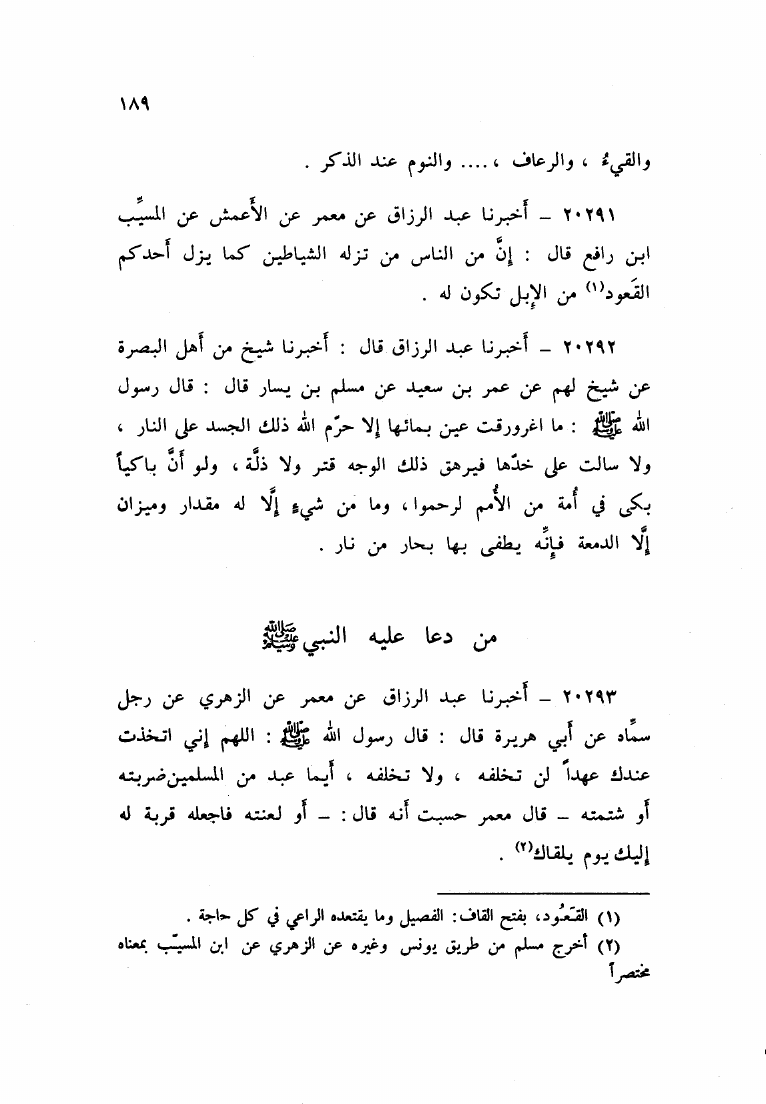 ١٨٩
والقيءُ ، والرعاف ، .... والنوم عند الذكر .
٢٠٢٩١ – أَخبرنا عبد الرزاق عن معمر عن الأَعمش عن المسيِّب
ابن رافع قال : إِنَّ من الناس من تزله الشياطين كما يزل أحدكم
القَعود(١) من الإِبل تكون له .
٢٠٢٩٢ – أَخبرنا عبد الرزاق قال : أَخبرنا شيخ من أَهل البصرة
عن شيخ لهم عن عمر بن سعيد عن مسلم بن يسار قال : قال رسول
الله ﷺ : ما اغرورقت عين بمائها إلا حرّم الله ذلك الجسد على النار ،
ولا سالت على خدّها فيرهق ذلك الوجه قتر ولا ذلَّة ، ولو أَنَّ باكياً
بكى في أُمة من الأُمم لرحموا ، وما من شيءٍ إِلَّا له مقدار وميزان
إِلَّا الدمعة فإِنَّه يطفى بها بحار من نار .
من دعا عليه النبي ﷺ
٢٠٢٩٣ – أَخبرنا عبد الرزاق عن معمر عن الزهري عن رجل
سمَّاه عن أَبي هريرة قال : قال رسول الله ﷺ : اللهم إِني اتخذت
عندك عهداً لن تخلفه ، ولا تخلفه ، أَيما عبد من المسلمين ضربته
أَو شتمته – قال معمر حسبت أَنه قال : – أَو لعنته فاجعله قربة له
إِليك يوم يلقاك(٢) .
(١) القَعُود، بفتح القاف : الفصيل وما يقتعده الراعي في كل حاجة .
(٢) أخرج مسلم من طريق يونس وغيره عن الزهري عن ابن المسيّب بمعناه
مختصراً